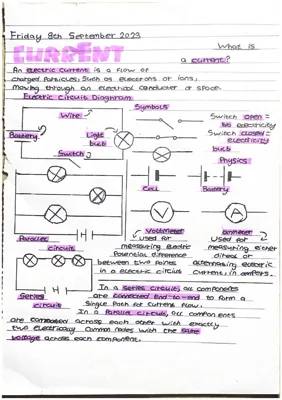 Friday 8th September 2023
What is
CURRENT
a current?
An electric current is a flow of
charged particles, such as electrons or ions,
moving through an electrical conductor or space.
Electric Circuit Diagram
Symbols
Wire
Switch open =
no electricity
Battery
Light
bulb
Switch closed =
electricity
bulb
Switch
Physics
Cell
Battery
V
A
Parallel
circuit
Voltmeter
used for
measuring electric
potential difference
between two points
in a electric circuis
ammeter
Used for
measuring either
direct or
alternating electric
current, in ampers.
Series
circuit
In a series circuit, all components
are connected end-to-end to form a
single path for current flow.
In a parallel circuis, all components
are connected across each other with exactly
two electrically common nodes with the same
voltage across each component.